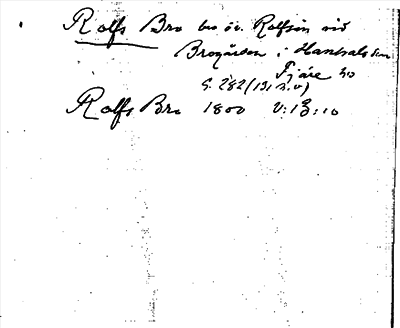 Rolfs Bro bro öv. Rolfsån vid
Brogården i Hanhals sn
Fjäre hd
G. 282 (131 n.v)
Rolfs Bro 1800 V:13:10